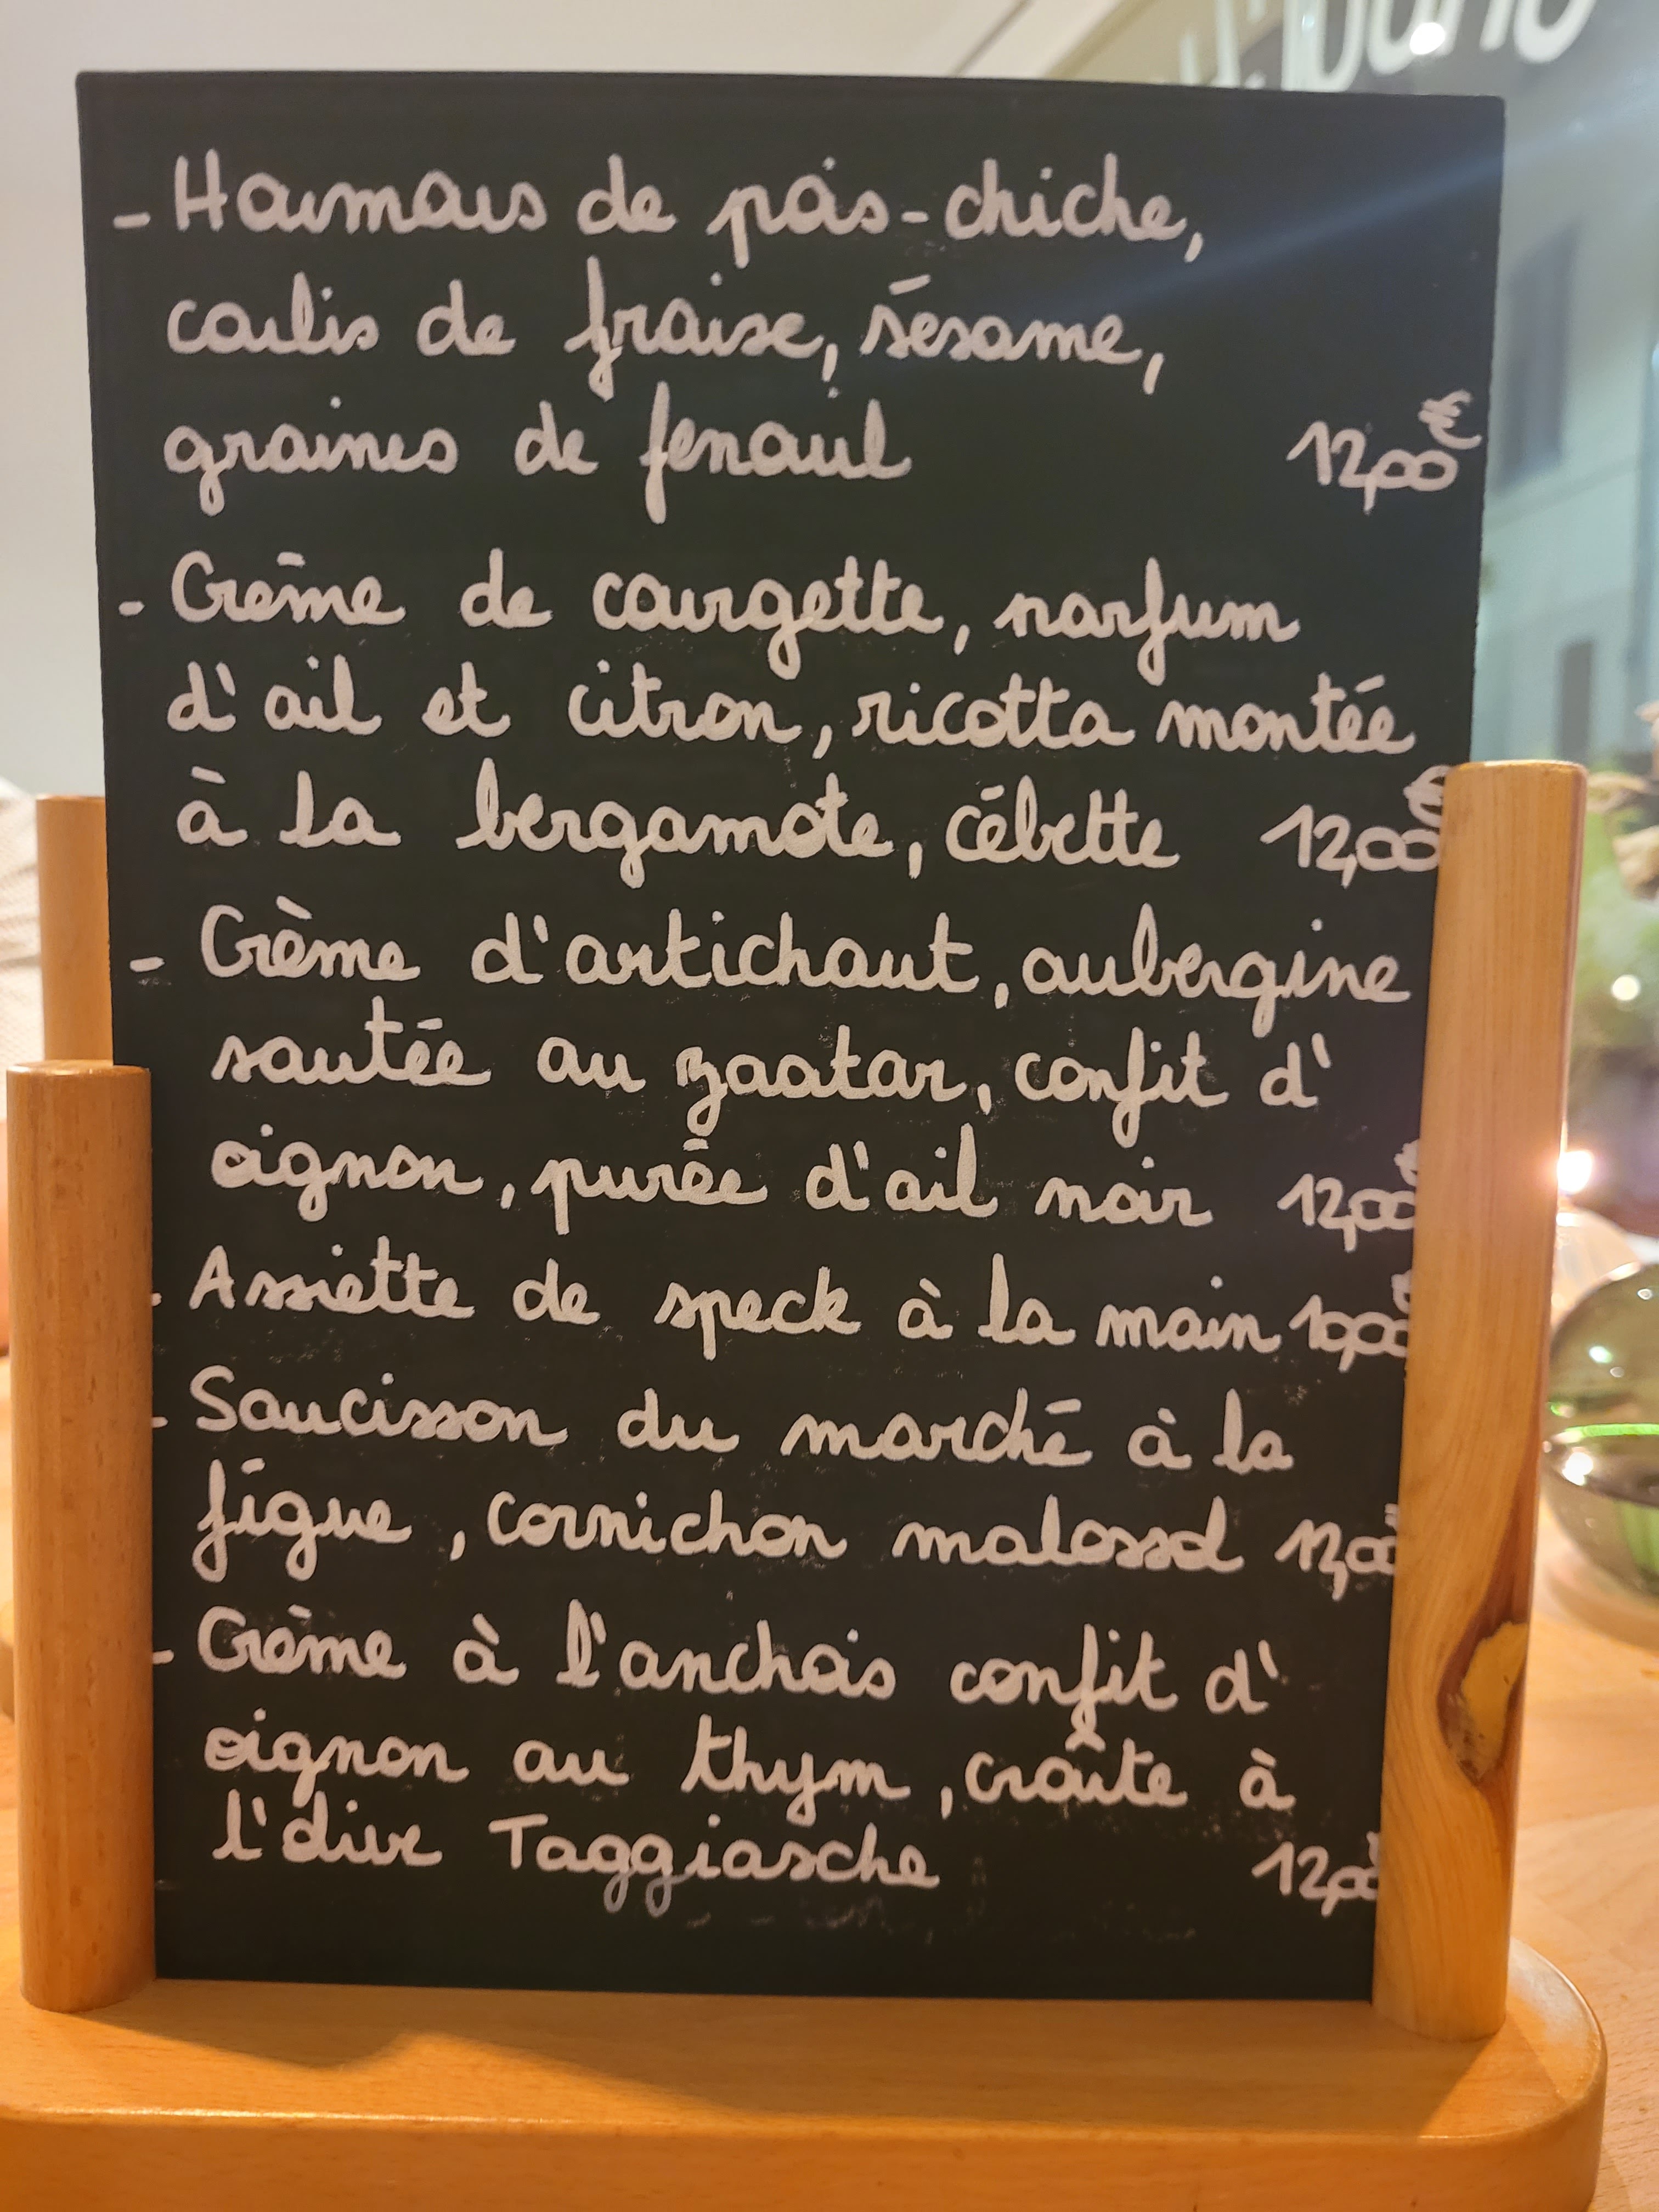 - Houmous de pois-chiche,
coulis de fraise, sésame,
graines de fenouil 12,00€
- Crème de courgette, parfum
d'ail et citron, ricotta montée
à la bergamote, cébette 12,00€
- Crème d'artichaut, aubergine
sautée au zaatar, confit d'
oignon, purée d'ail noir 12,00€
- Assiette de speck à la main 10,00€
- Saucisson du marché à la
figue, cornichon malossol 12,00
- Crème à l'anchois confit d'
oignon au thym, croûte à
l'olive Taggiasche 12,00